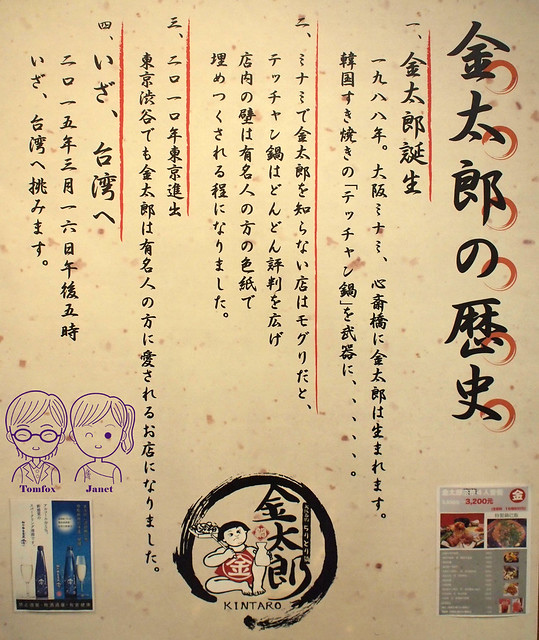 金太郎の歴史
一、金太郎誕生
一九八八年。大阪ミナミ、心斎橋に金太郎は生まれます。
韓国すき焼きの「テッチャン鍋」を武器に、、、、、。
二、ミナミで金太郎を知らない店はモグリだと、
テッチャン鍋はどんどん評判を広げ
店内の壁は有名人の方の色紙で
埋めつくされる程になりました。
三、二〇一〇年東京進出
東京渋谷でも金太郎は有名人の方に愛されるお店になりました。
四、いざ、台湾へ
二〇一五年三月一六日午後五時
いざ、台湾へ挑みます。
Tomfox
Janet
ちりとり鍋
金太郎
金
KINTARO
金
3,200元